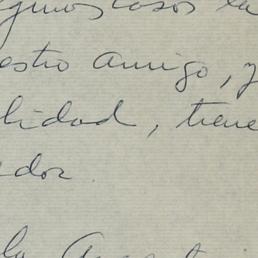 algunos casos la
estro amigo, y
lidad, tiene
ador.
la